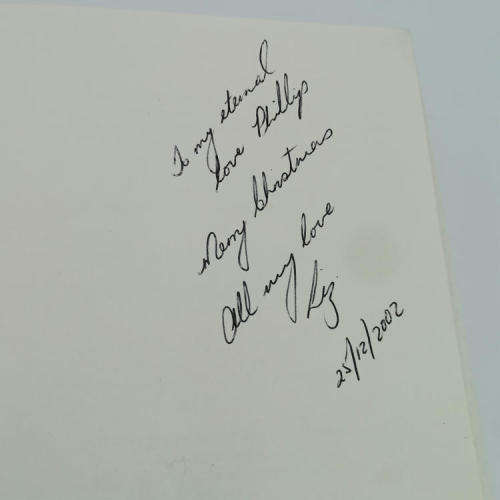 To my eternal
love Phillip
Merry Christmas
All my love
Liz.
25/12/2002